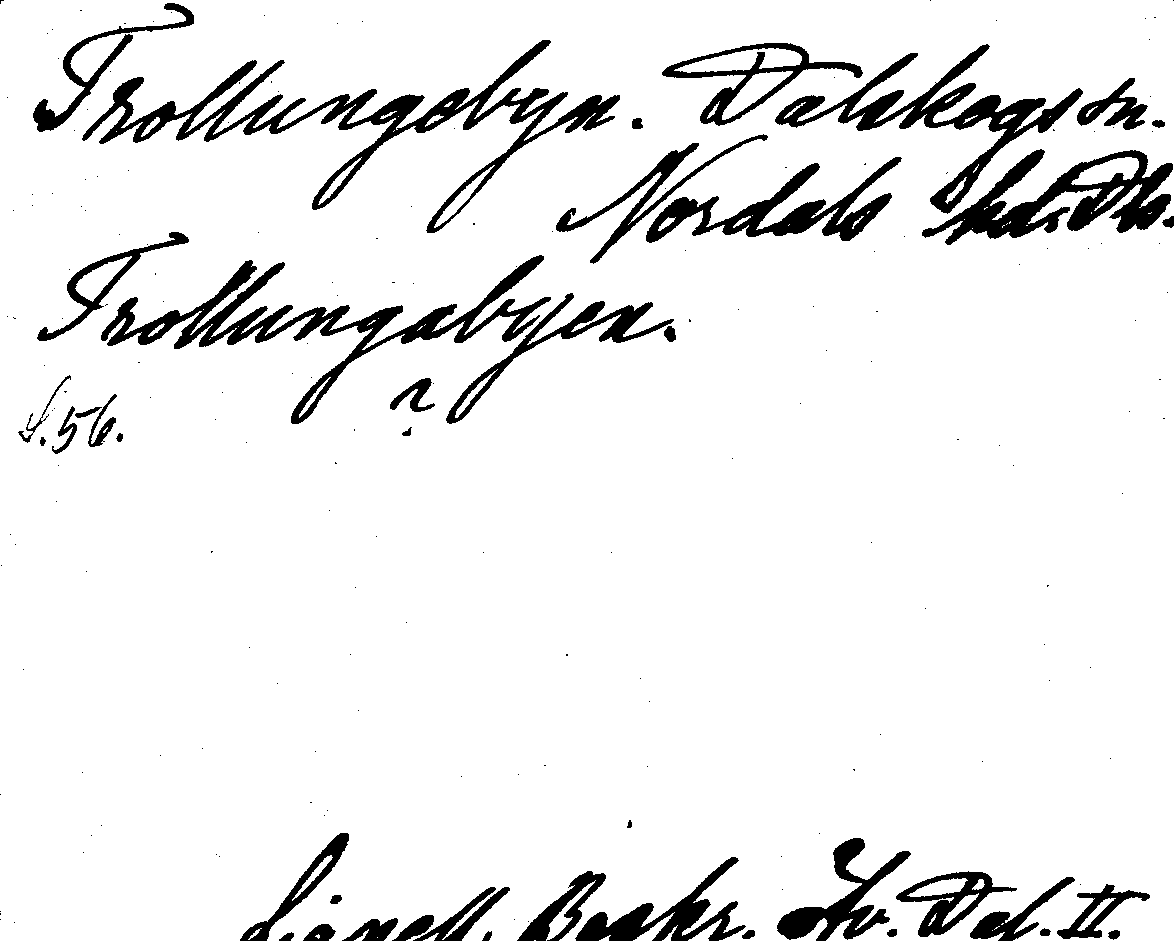 Trollungebyn. Dalskogs sn.
Nordals hd. Dls.
Trollungabyen.
?
S. 56.
Lignell, Beskr. öfv. Dal. II.